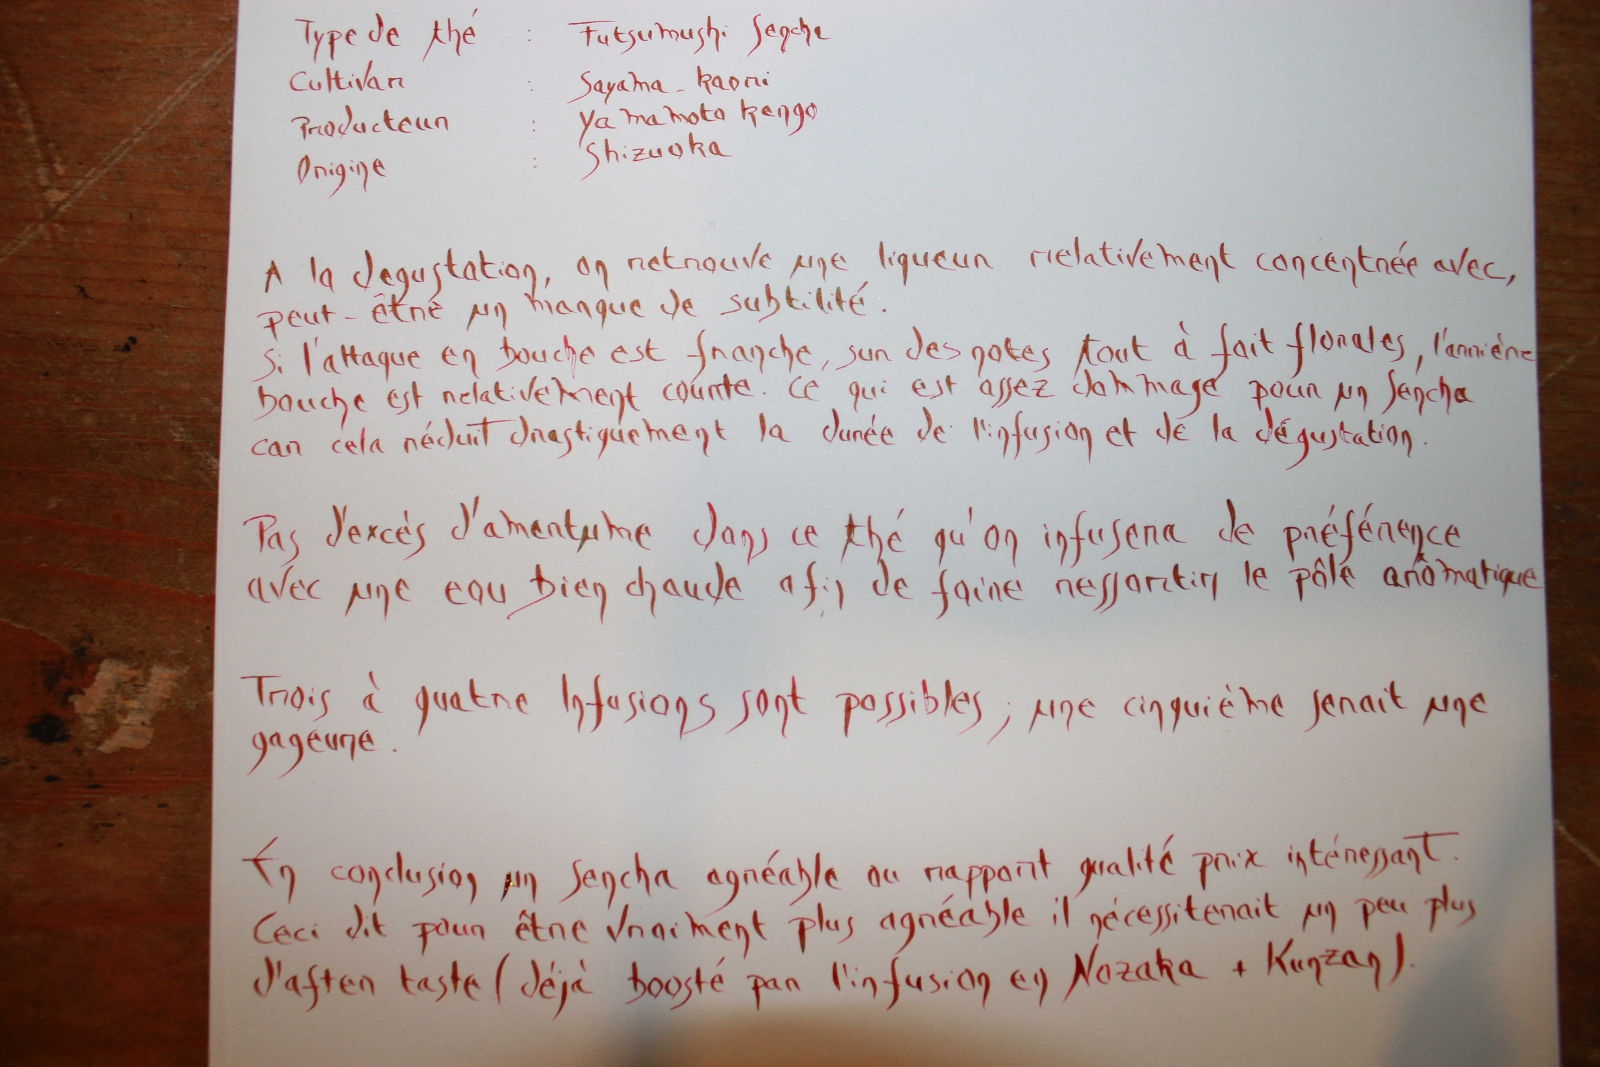 Type de thé : Futsumushi Sencha
Cultivar : Sayama-kaori
Producteur : Yamamoto Kengo
Origine : Shizuoka
A la degustation, on retrouve une liqueur relativement concentrée avec,
peut-être un manque de subtilité.
Si l'attaque en bouche est franche, sur des notes tout à fait florales, l'arrière
bouche est relativement courte. Ce qui est assez dommage pour un Sencha
car cela réduit drastiquement la durée de l'infusion et de la dégustation.
Pas d'excès d'amertume dans ce thé qu'on infusera de préférence
avec une eau bien chaude afin de faire ressortir le pôle arômatique
Trois à quatre Infusions sont possibles ; une cinquième serait une
gageure.
En conclusion un Sencha agréable au rapport qualité prix intéressant.
Ceci dit pour être vraiment plus agréable il nécessiterait un peu plus
d'after taste (déjà boosté par l'infusion en Nozaka + Kunzan).